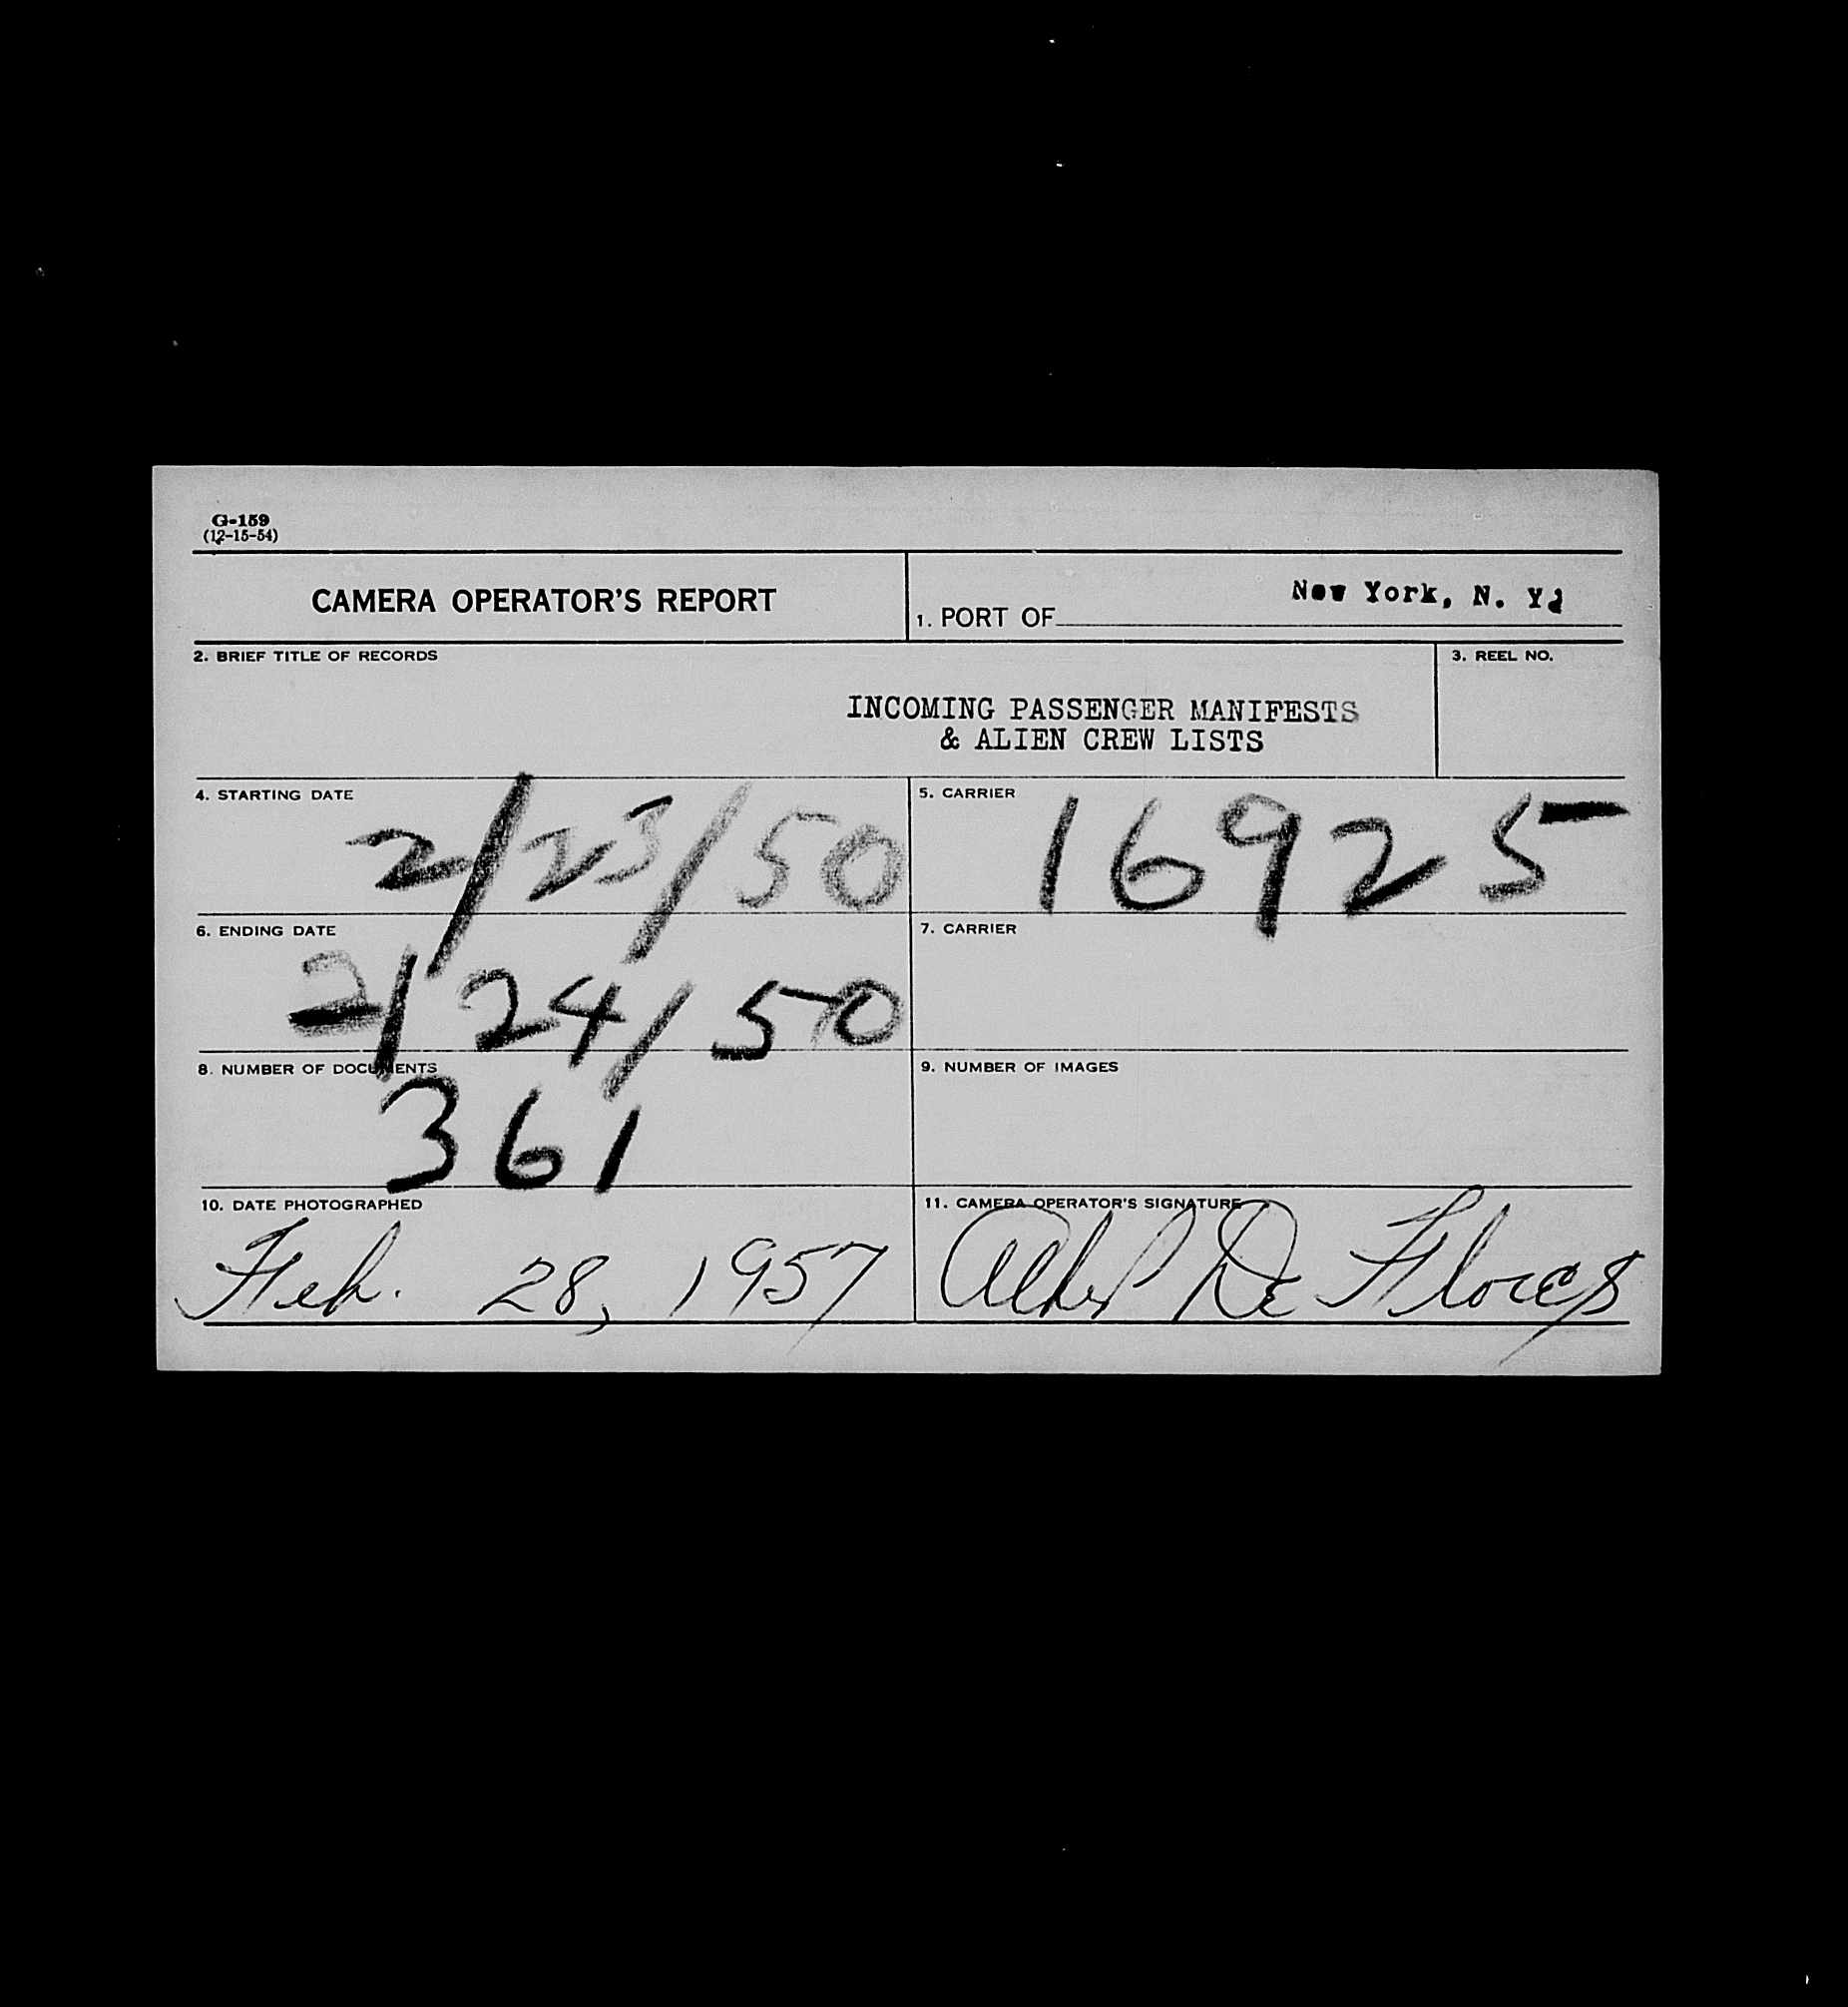 G-159
(12-15-54)
CAMERA OPERATOR'S REPORT
1. PORT OF New York, N. Y.
2. BRIEF TITLE OF RECORDS
3. REEL NO.
INCOMING PASSENGER MANIFESTS
& ALIEN CREW LISTS
4. STARTING DATE
2/23/50
5. CARRIER
16925
6. ENDING DATE
2/24/50
7. CARRIER
8. NUMBER OF DOCUMENTS
361
9. NUMBER OF IMAGES
10. DATE PHOTOGRAPHED
Feb. 28, 1957
11. CAMERA OPERATOR'S SIGNATURE
De Flores